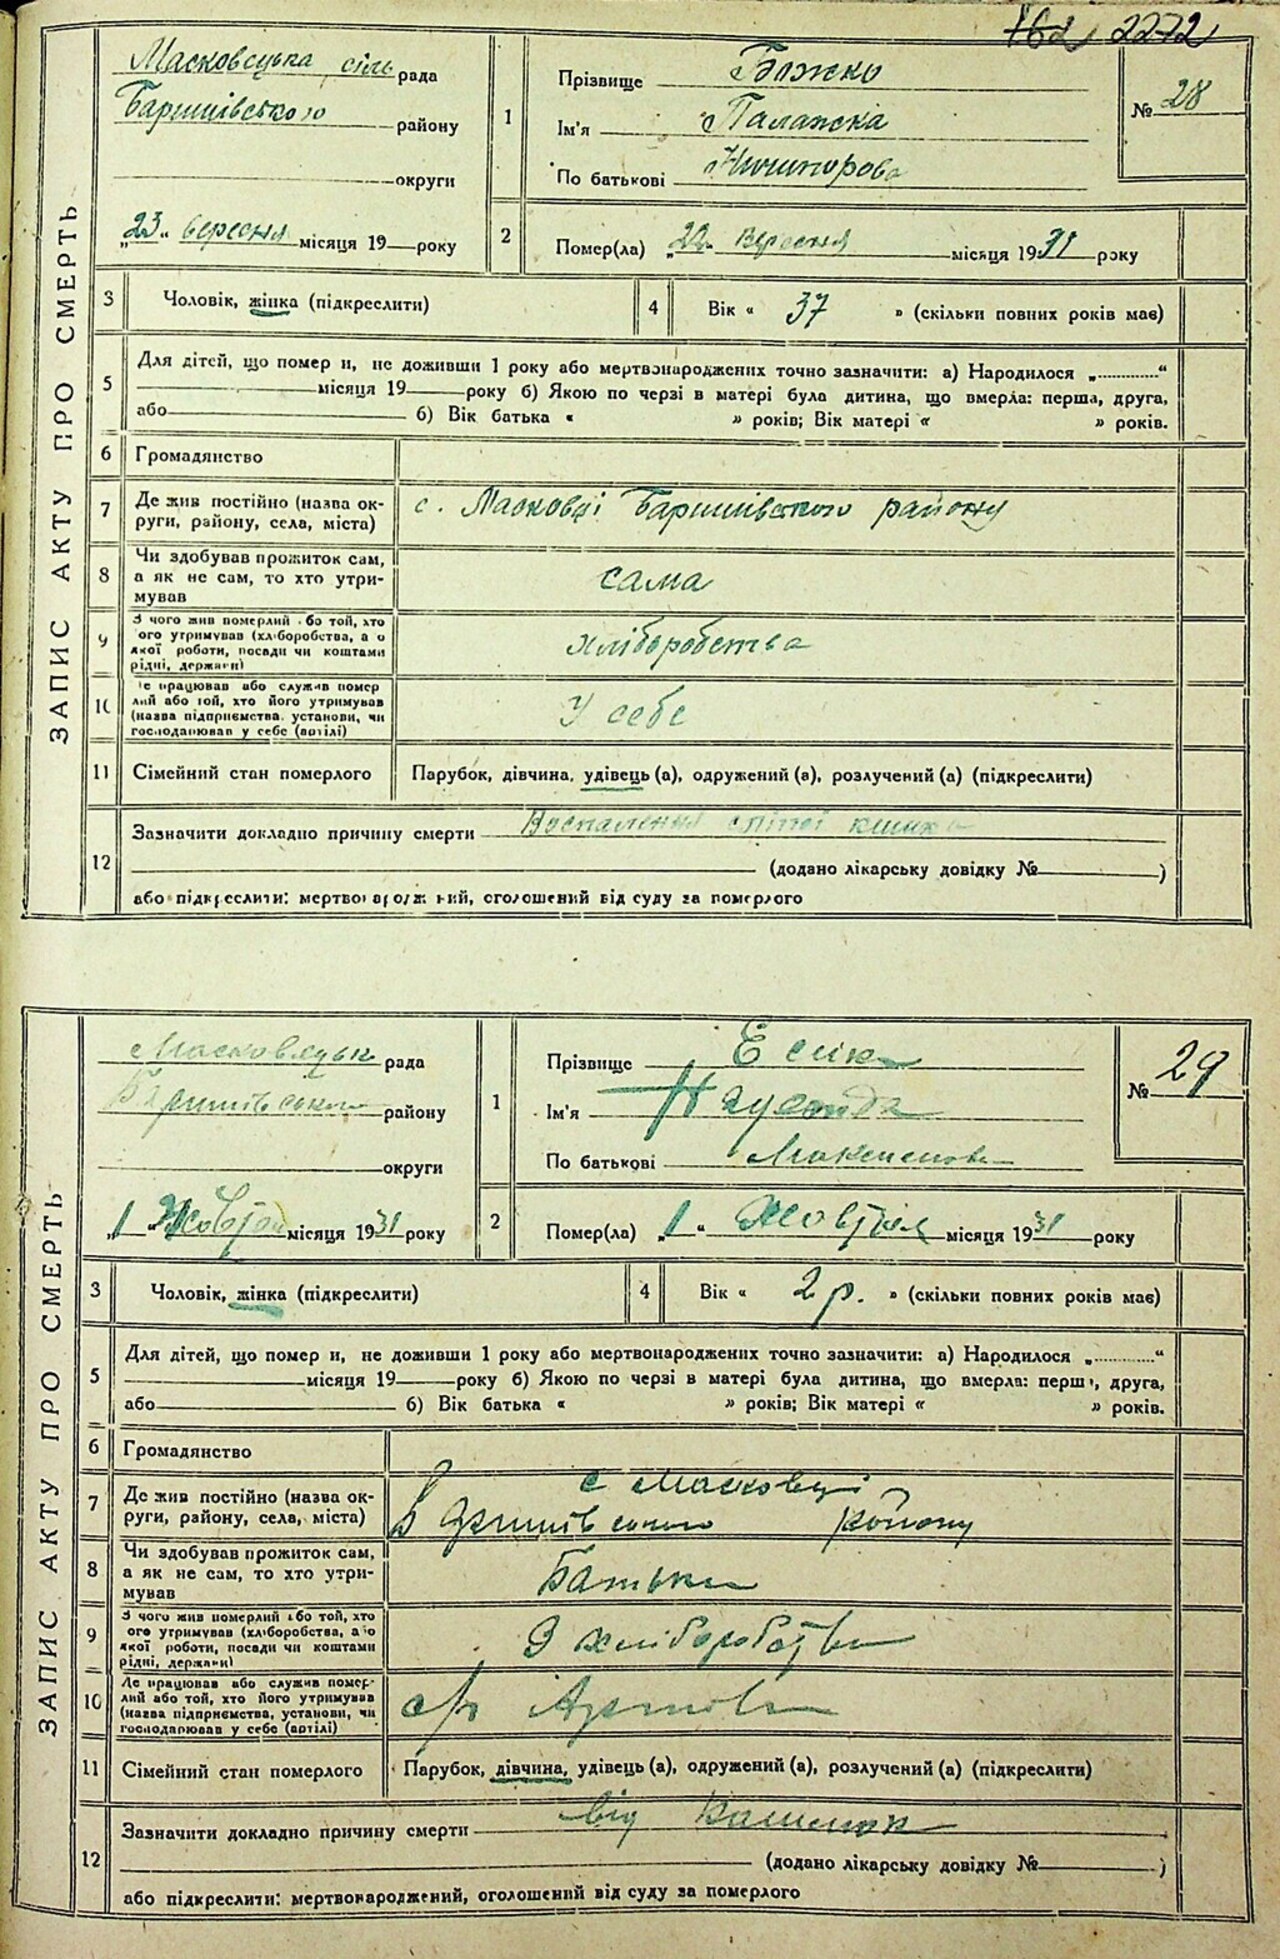 162 2272
ЗАПИС АКТУ ПРО СМЕРТЬ
Масковецька сіль рада
Баришівського району
округи
„23“ вересня місяця 19 року
1
Прізвище Божко
Ім'я Палажка
По батькові Ничипорова
№ 28
2
Помер(ла) „22“ вересня місяця 1931 року
3 Чоловік, жінка (підкреслити)
4 Вік « 37 » (скільки повних років має)
5
Для дітей, що помер и, не доживши 1 року або мертвонароджених точно зазначити: а) Народилося „ “
місяця 19 року б) Якою по черзі в матері була дитина, що вмерла: перша, друга,
або б) Вік батька « » років; Вік матері « » років.
6 Громадянство
7
Де жив постійно (назва ок-
руги, району, села, міста)
с. Масковці Баришівського району
8
Чи здобував прожиток сам,
а як не сам, то хто утри-
мував
сама
9
З чого жив померлий або той, хто
ого утримував (хліборобства, а о
якої роботи, посади чи коштами
рідні, держави)
хліборобства
10
е працював або служив помер
лий або той, хто його утримував
(назва підприємства, установи, чи
господарював у себе (артілі)
У себе
11 Сімейний стан померлого
Парубок, дівчина, удівець (а), одружений (а), розлучений (а) (підкреслити)
12
Зазначити докладно причину смерти Воспалення сліпої кишки
(додано лікарську довідку № )
або підкреслити: мертвонароджений, оголошений від суду за померлого
ЗАПИС АКТУ ПРО СМЕРТЬ
Масковецьк рада
Баришівського району
округи
„1“ Жовтня місяця 1931 року
1
Прізвище
Ім'я
По батькові
№ 29
2
Помер(ла) „1“ Жовтня місяця 1931 року
3 Чоловік, жінка (підкреслити)
4 Вік « 2 р. » (скільки повних років має)
5
Для дітей, що помер и, не доживши 1 року або мертвонароджених точно зазначити: а) Народилося „ “
місяця 19 року б) Якою по черзі в матері була дитина, що вмерла: перша, друга,
або б) Вік батька « » років; Вік матері « » років.
6 Громадянство
7
Де жив постійно (назва ок-
руги, району, села, міста)
с Масковці
Баришівського району
8
Чи здобував прожиток сам,
а як не сам, то хто утри-
мував
Батьки
9
З чого жив померлий або той, хто
ого утримував (хліборобства, а о
якої роботи, посади чи коштами
рідні, держави)
З хліборобства
10
Де працював або служив помер-
лий або той, хто його утримував
(назва підприємства, установи, чи
господарював у себе (артілі)
с/г
11 Сімейний стан померлого
Парубок, дівчина, удівець (а), одружений (а), розлучений (а) (підкреслити)
12
Зазначити докладно причину смерти від
(додано лікарську довідку № )
або підкреслити: мертвонароджений, оголошений від суду за померлого